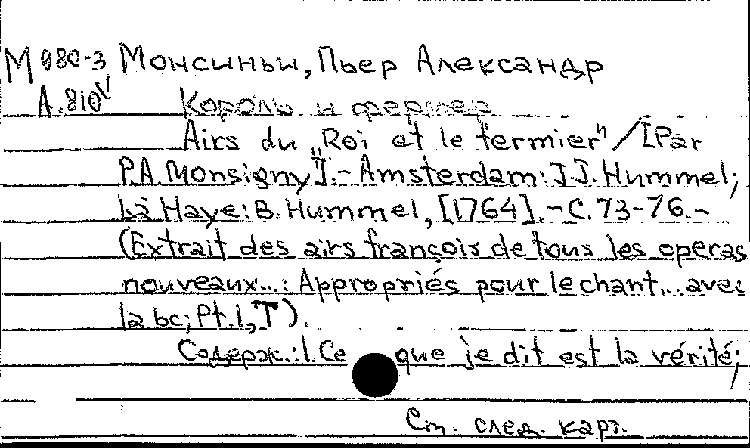 М 080-3 Монсиньи, Пьер Александр
А.810 Король и фермер
Airs du „Roi et le fermier" / [Par
P.A. Monsigny]. - Amsterdam: J.J. Hummel;
La Haye: B. Hummel, [1764]. - C. 73-76. -
(Extrait des airs françois de tous les operas
nouveaux...: Appropriés pour le chant... avec
la bc; Pt. 1, T).
Содерж.: 1. Ce que je dit est la vérité;
См. след. карт.